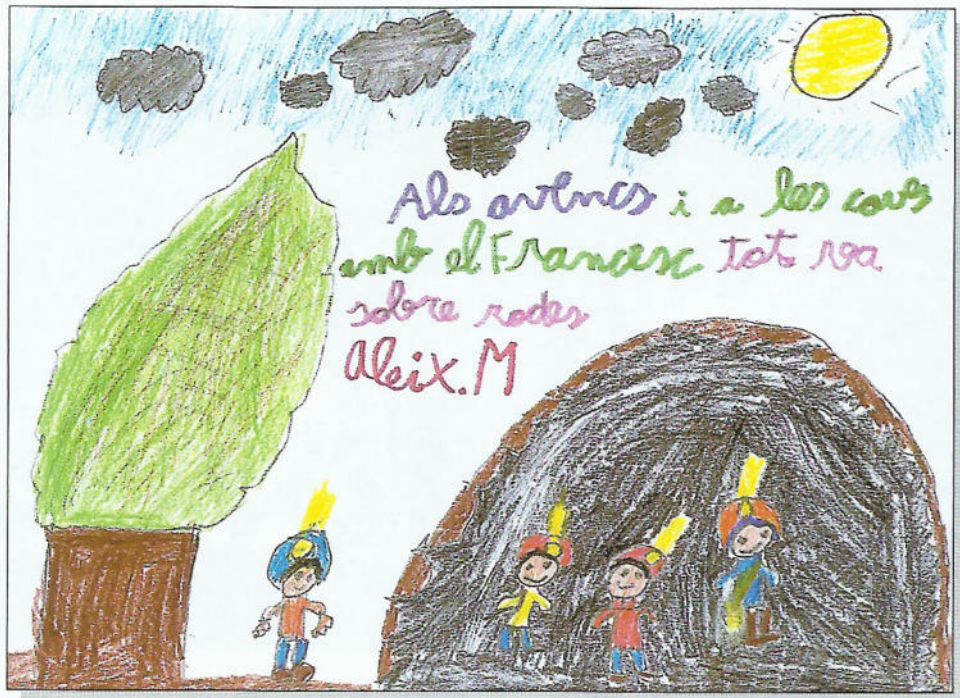 Als avencs i a les coves
amb el Francesc tot va
sobre rodes
Aleix.M